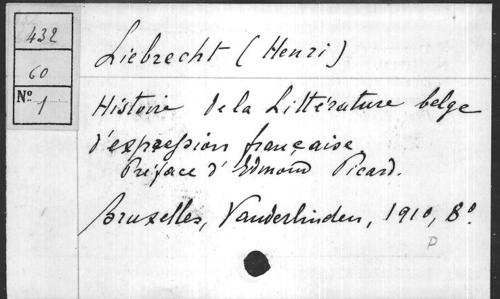 432
60
Nº 1
Liebrecht (Henri)
Histoire de la Littérature belge
d'expression française
Préface d'Edmond Picard.
Bruxelles, Vanderlinden, 1910, 8º.
P